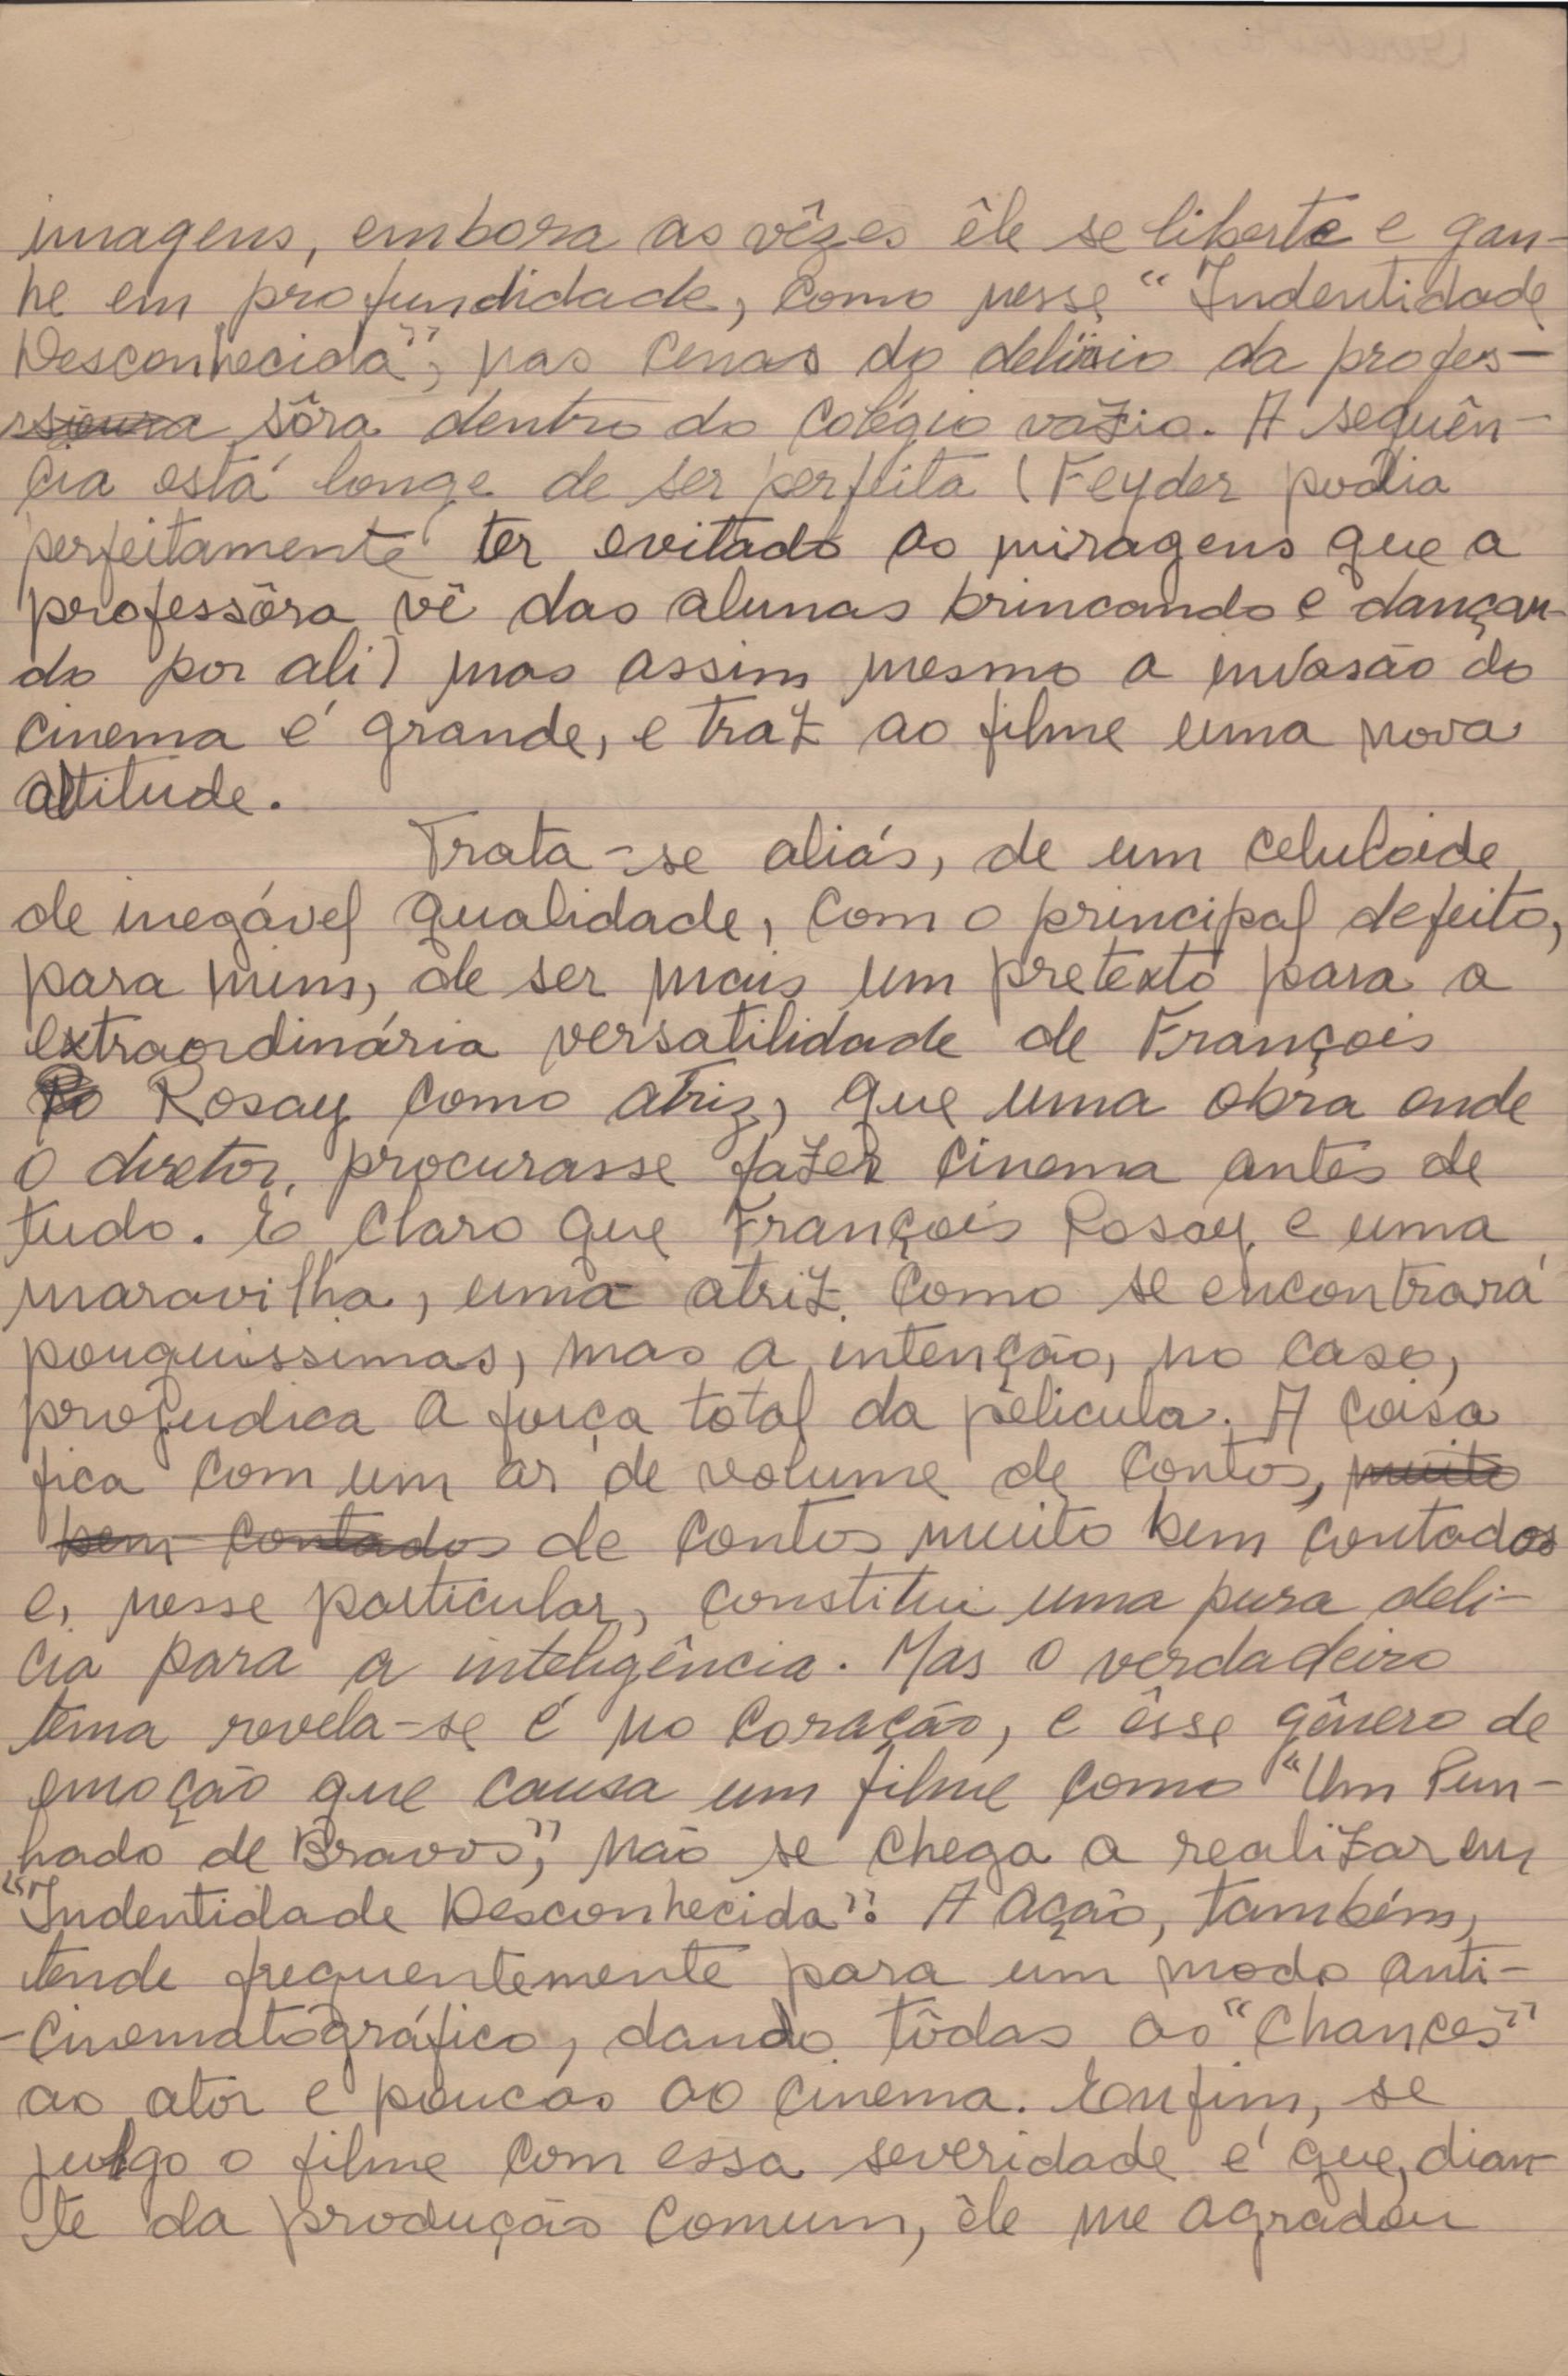 imagens, embora as vêzes êle se liberte e gan-
he em profundidade, como nesse "Indentidade
Desconhecida", nas cenas do delírio da profes-
sôra dentro do colégio vazio. A sequên-
cia está longe de ser perfeita (Feyder podia
perfeitamente ter evitado as miragens que a
professôra vê das alunas brincando e dançan-
do por ali) mas assim mesmo a invasão do
cinema é grande, e traz ao filme uma nova
atitude.
Trata-se aliás, de um celuloide
de inegável qualidade, com o principal defeito,
para mim, de ser mais um pretexto para a
extraordinária versatilidade de François
Rosay como atriz, que uma obra onde
o diretor procurasse fazer cinema antes de
tudo. É claro que François Rosay e uma
maravilha, uma atriz como se encontrará
pouquissimas, mas a intenção, no caso,
prejudica a força total da película. A coisa
fica com um ar de volume de contos, muito
bem contados de contos muito bem contados
e, nesse particular, constitui uma pura deli-
cia para a inteligência. Mas o verdadeiro
tema revela-se é no coração, e êsse gênero de
emoção que causa um filme como "Um Pun-
hado de Bravos", não se chega a realizar em
"Indentidade Desconhecida". A ação, também,
tende frequentemente para um modo anti-
-cinematográfico, dando tôdas as "chances"
ao ator e poucas ao cinema. Enfim, se
julgo o filme com essa severidade é que, dian-
te da produção comum, êle me agradou